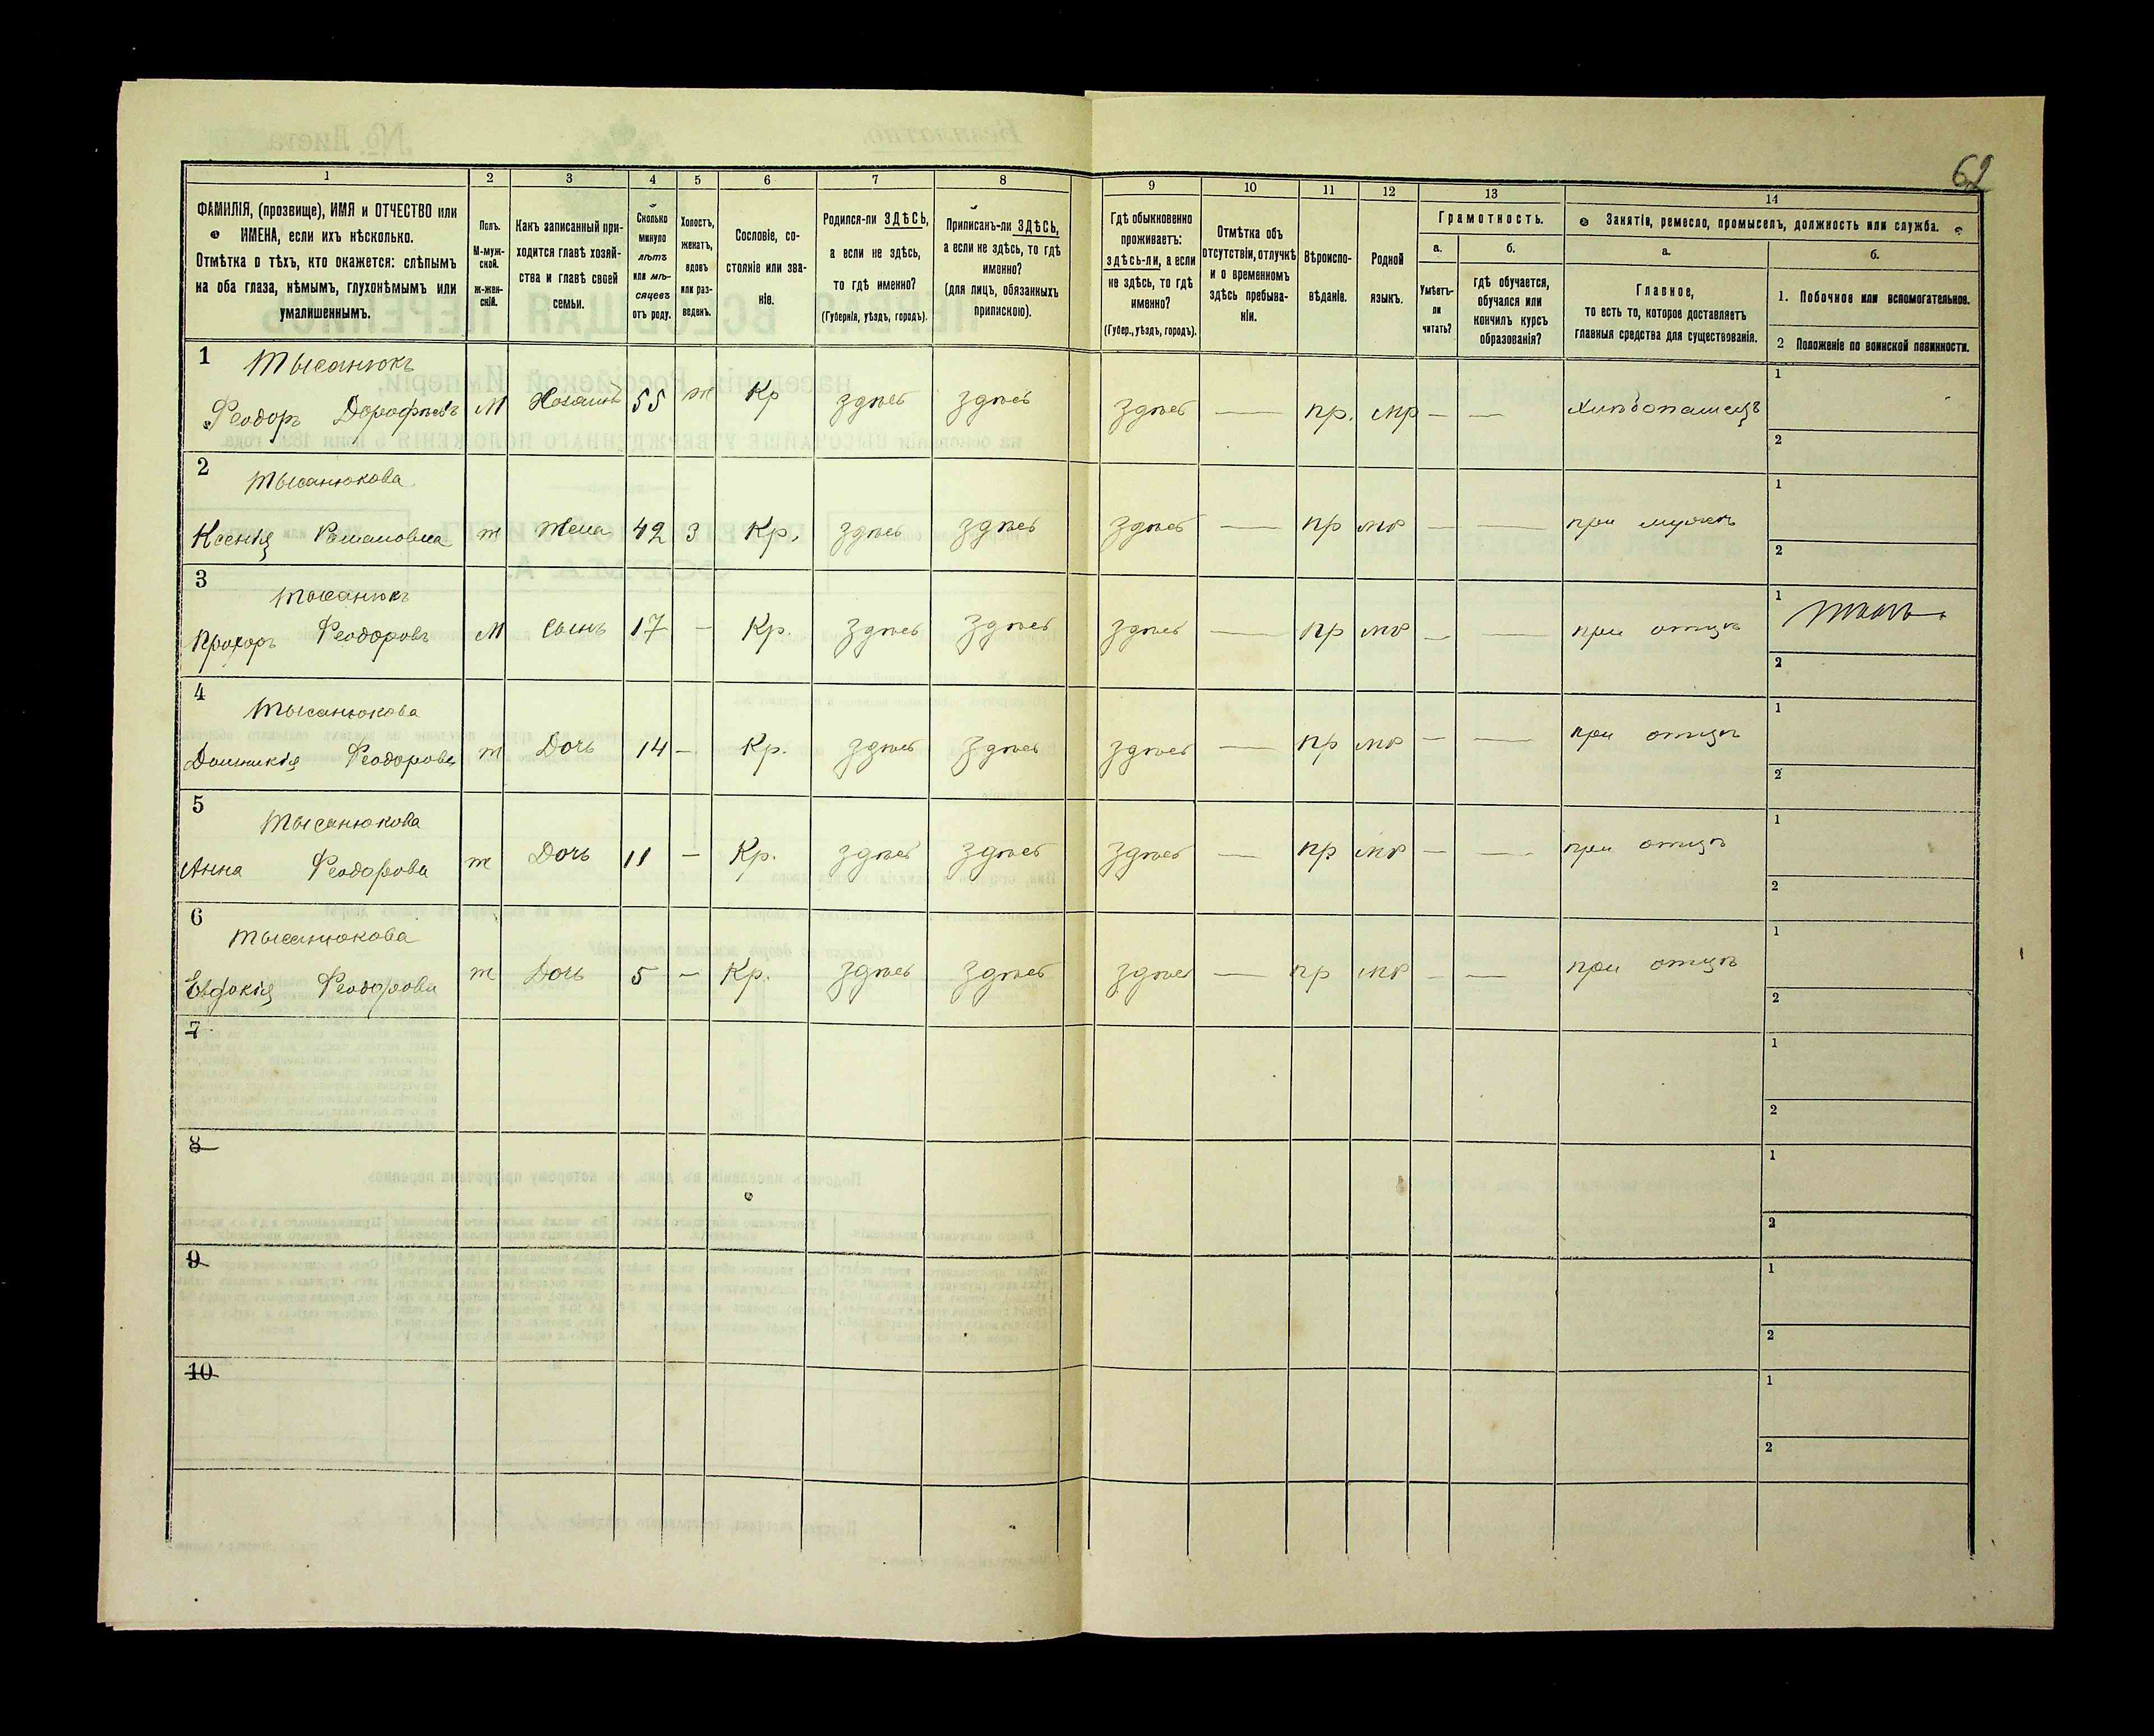 62
1 2 3 4 5 6 7 8 9 10 11 12 13 14
ФАМИЛІЯ, (прозвище), ИМЯ и ОТЧЕСТВО или
ИМЕНА, если ихъ нѣсколько.
Отмѣтка о тѣхъ, кто окажется: слѣпымъ
на оба глаза, нѣмымъ, глухонѣмымъ или
умалишеннымъ.
Полъ.
М-муж-
ской.
ж-жен-
скій.
Какъ записанный при-
ходится главѣ хозяй-
ства и главѣ своей
семьи.
Сколько
минуло
лѣтъ
или мѣ-
сяцевъ
отъ роду.
Холостъ,
женатъ,
вдовъ
или раз-
веденъ.
Сословіе, со-
стояніе или зва-
ніе.
Родился-ли ЗДѢСЬ,
а если не здѣсь,
то гдѣ именно?
(Губернія, уѣздъ, городъ).
Приписанъ-ли ЗДѢСЬ,
а если не здѣсь, то гдѣ
именно?
(для лицъ, обязанныхъ
припискою).
Гдѣ обыкновенно
проживаетъ:
здѣсь-ли, а если
не здѣсь, то гдѣ
именно?
(Губер., уѣздъ, городъ).
Отмѣтка объ
отсутствіи, отлучкѣ
и о временномъ
здѣсь пребыва-
ніи.
Вѣроиспо-
вѣданіе.
Родной
языкъ.
Грамотность.
а.
Умѣетъ-
ли
читать?
б.
гдѣ обучается,
обучался или
кончилъ курсъ
образованія?
Занятія, ремесло, промыселъ, должность или служба.
а.
Главное,
то есть то, которое доставляетъ
главныя средства для существованія.
б.
1. Побочное или вспомогательное.
2 Положеніе по воинской повинности.
1 Тысанюкъ
Феодоръ Дорофѣевъ М Хозяинъ 55 ж Кр здѣсь здѣсь здѣсь — пр. мр — — хлѣбопашецъ
1
2
2 Тысанюкова
Ксенія Романовна ж Жена 42 З Кр. здѣсь здѣсь здѣсь — пр мр — — при мужѣ
1
2
3 Тысанюкъ
Прохоръ Феодоровъ М Сынъ 17 — Кр. здѣсь здѣсь здѣсь — пр мр — — при отцѣ
1
2
4 Тысанюкова
Домникія Феодорова ж Дочь 14 — Кр. здѣсь здѣсь здѣсь — пр мр — — при отцѣ
1
2
5 Тысанюкова
Анна Феодорова ж Дочь 11 — Кр. здѣсь здѣсь здѣсь — пр мр — — при отцѣ
1
2
6 Тысанюкова
Евдокія Феодорова ж Дочь 5 — Кр. здѣсь здѣсь здѣсь — пр мр — — при отцѣ
1
2
7
1
2
8
1
2
9
1
2
10
1
2